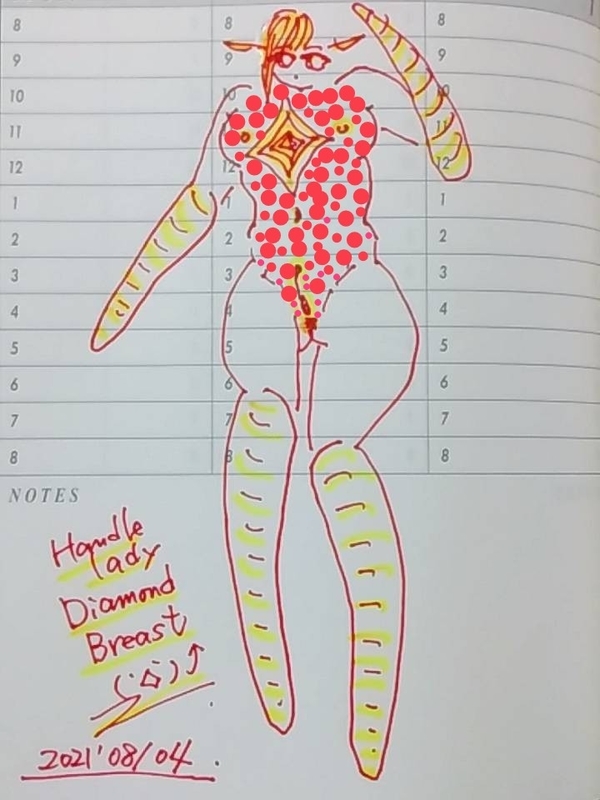 8 8 8
9 9 9
10 10 10
11 11 11
12 12 12
1 1 1
2 2 2
3 3 3
4 4 4
5 5 5
6 6 6
7 7 7
8 8 8
NOTES
Handle
lady
Diamond
Breast
2021'08/04.